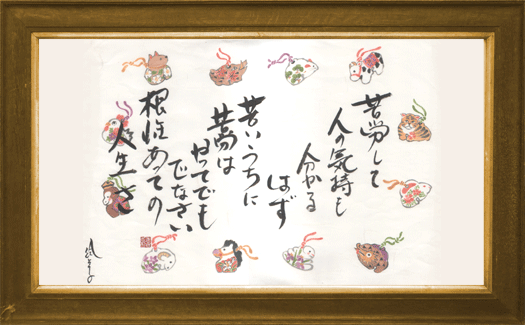 苦労して
人の気持も
分かる
はず
若いうちに
苦労は
かってでも
しなさい
根性あっての
人生さ